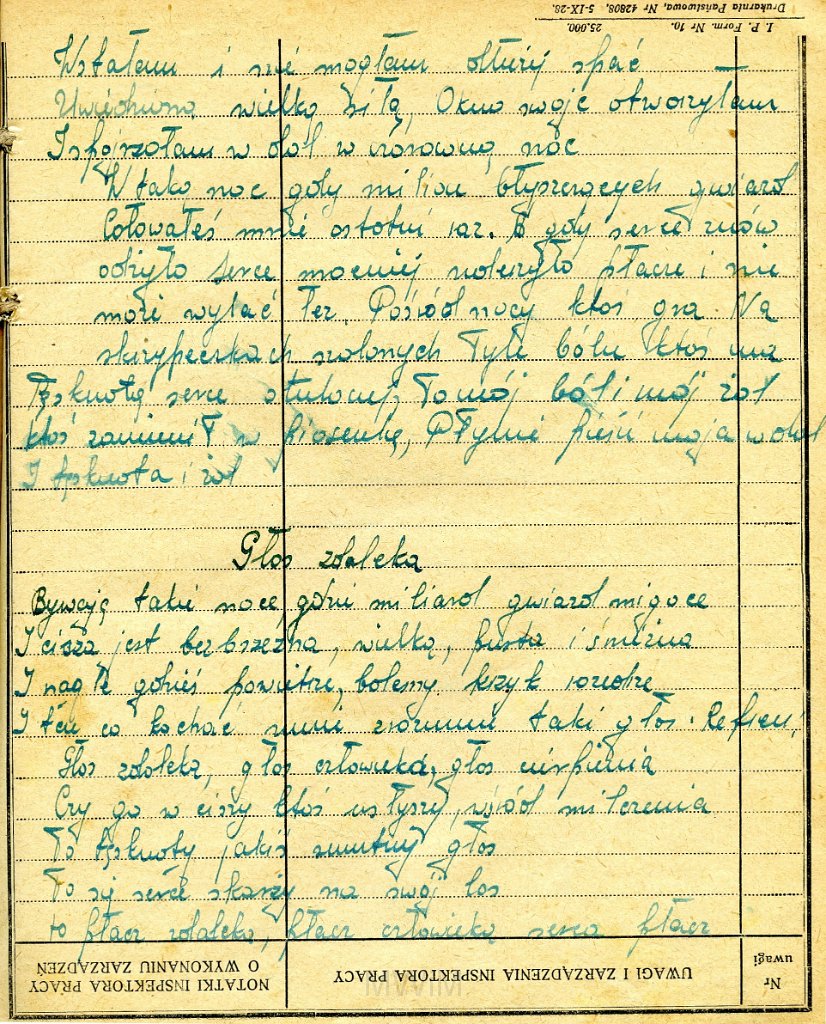 I. P. Form. Nr 10. 25.000.
Drukarnia Państwowa, Nr 42808, 5-IX-28.
Wstałam i nie mogłam dłużej spać
wielką siłą, Okno swoje otworzyłam
I spojrzałam w dal w wiosenną noc
W taką noc gdy milion błyszczących gwiazd
Całowałeś mnie ostatni raz. A gdy serce znów
odżyło serce mocniej uderzyło płacze i nie
może wylać łez. Pośród nocy ktoś gra Na
skrzypeczkach szalonych Tyle bólu ktoś ma
Tęsknotę serce to mój ból i mój żal
ktoś zamienił w piosenkę, Płynie pieśń moja w dal
I tęsknota i żal
Głos zdaleka
Bywają takie noce, gdzie miliard gwiazd migoce
I cisza jest bezbrzeżna, wielka, pusta i śnieżna
I nagle gdzieś powietrze, bolesny krzyk rozedrze
I ten co kochać umie zrozumie taki głos. Refren:
Głos zdaleka, głos człowieka, głos cierpienia
Czy go w ciszy ktoś usłyszy, wśród milczenia
To tęsknoty jakiś smutny głos
To się serce skarży na swój los
to płacz zdaleka, płacz człowieka serca płacz
NOTATKI INSPEKTORA PRACY O WYKONANIU ZARZĄDZEŃ
UWAGI I ZARZĄDZENIA INSPEKTORA PRACY
Nr uwagi
MWIM